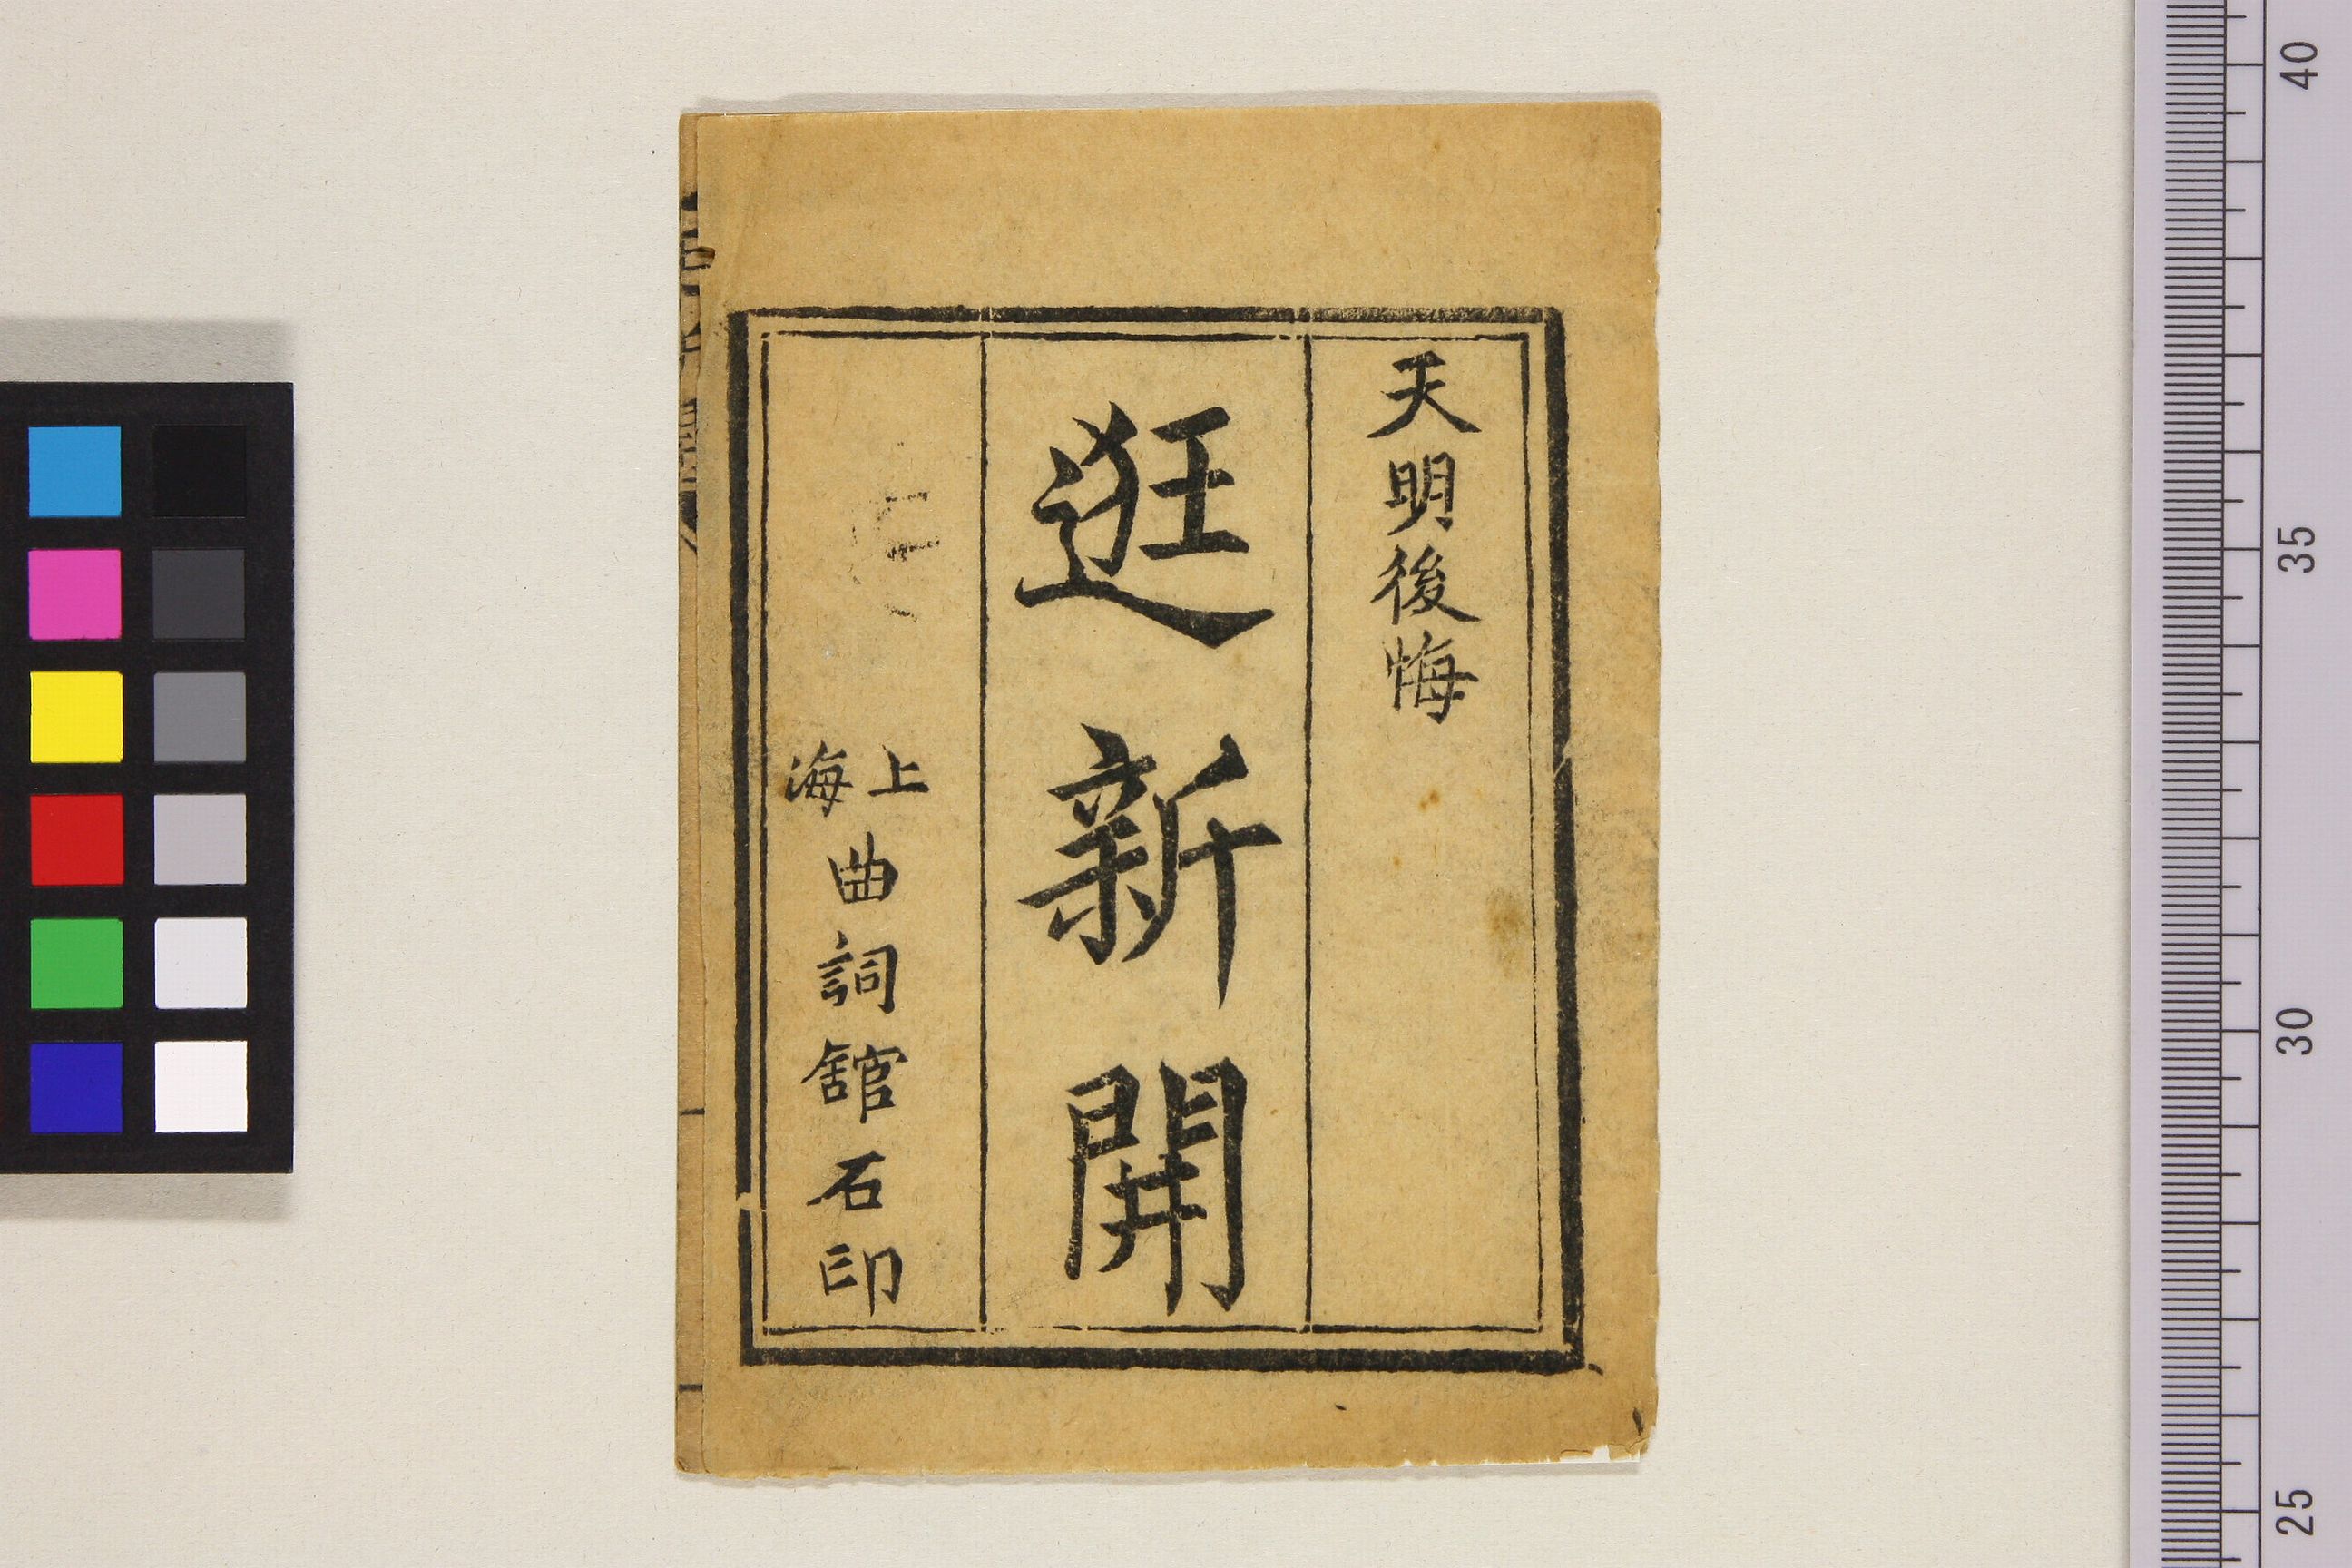 天明後悔
逛新開
上海
曲詞舘石印
40
35
30
25